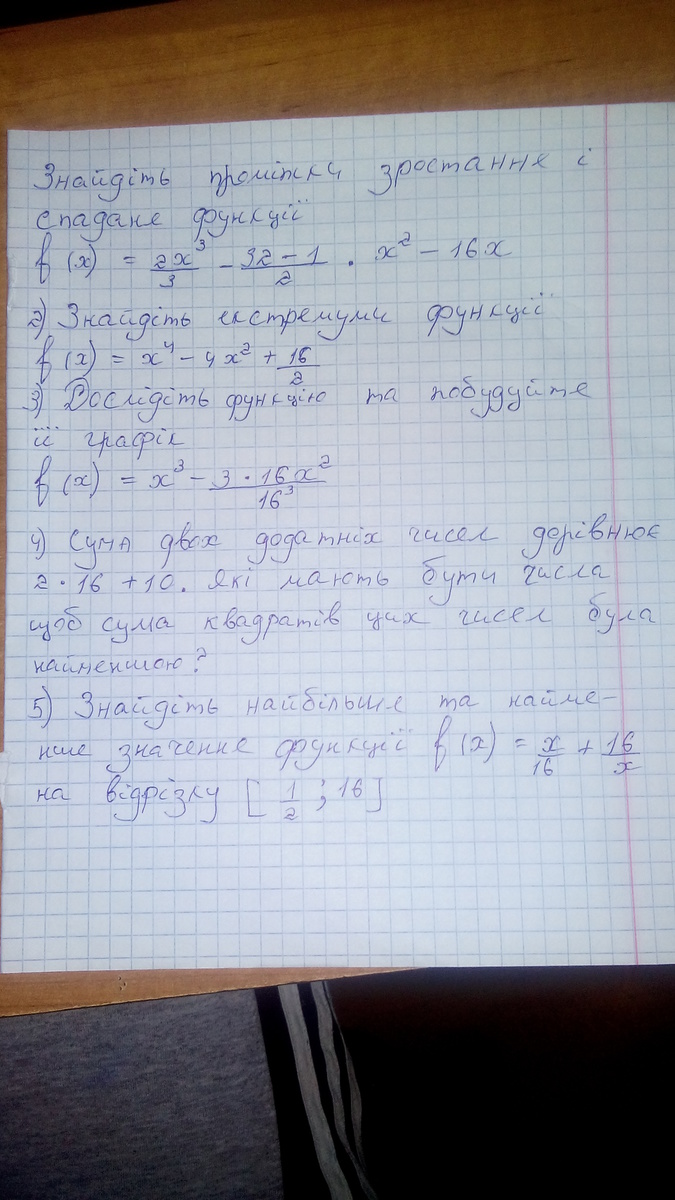 Знайдіть проміжки зростання і
спадане функції
f(x) = 2x³/3 - 32-1/2 · x² - 16x
2) Знайдіть екстремуми функції
f(x) = x⁴ - 4x² + 16/2
3) Дослідіть функцію та побудуйте
її графік
f(x) = x³ - 3·16x²/16³
4) Сума двох додатніх чисел дорівнює
2·16+10. Які мають бути числа
щоб сума квадратів цих чисел була
найменшою?
5) Знайдіть найбільше та найме-
нше значення функції f(x) = x/16 + 16/x
на відрізку [1/2; 16]